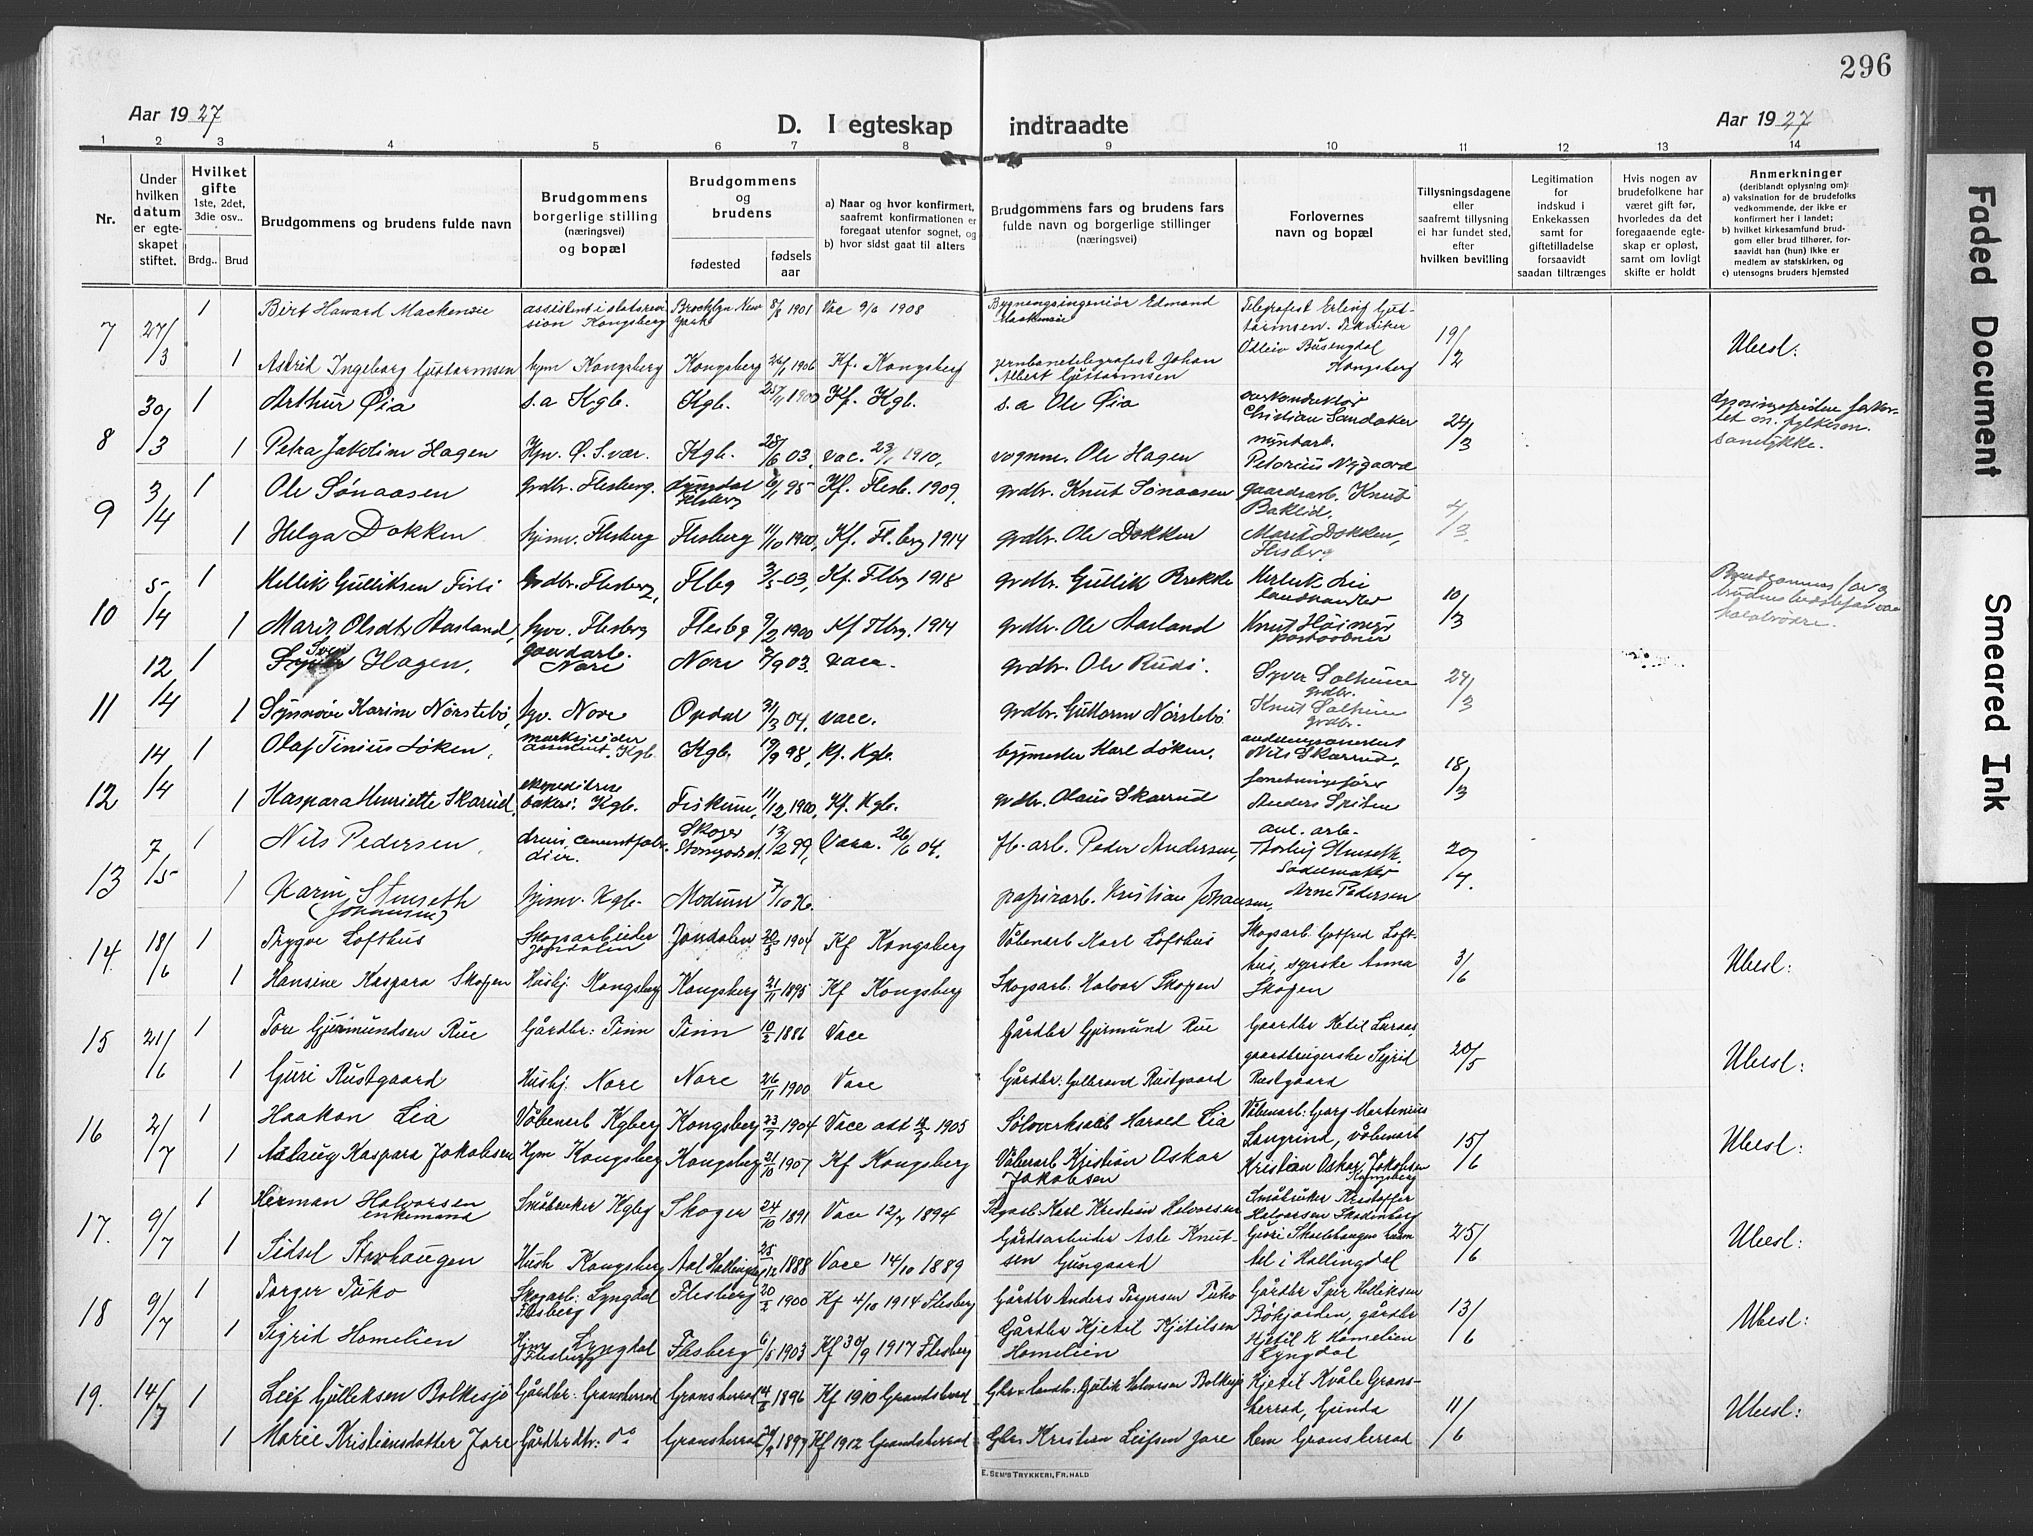 296
Aar 1927
D. I egteskap indtraadte
Aar 1927
1 2 3 4 5 6 7 8 9 10 11 12 13 14
Nr.
Under hvilken datum er egteskapet stiftet.
Hvilket gifte
1ste, 2det, 3die osv..
Brdg.. Brud
Brudgommens og brudens fulde navn
Brudgommens borgerlige stilling (næringsvei) og bopæl
Brudgommens og brudens
fødested
fødsels aar
a) Naar og hvor konfirmert, saafremt konfirmationen er foregaat utenfor sognet, og
b) hvor sidst gaat til alters
Brudgommens fars og brudens fars fulde navn og borgerlige stillinger (næringsvei)
Forlovernes navn og bopæl
Tillysningsdagene eller saafremt tillysning ei har fundet sted, efter hvilken bevilling
Legitimation for indskud i Enkekassen samt for giftetilladelse forsaavidt saadan tiltrænges
Hvis nogen av brudefolkene har været gift før, hvorledes da det foregaaende egteskap er opløst, samt om lovligt skifte er holdt
Anmerkninger
(deriblandt oplysning om):
a) vaksination for de brudefolks vedkommende, der ikke er konfirmert her i landet;
b) hvilket kirkesamfund brudgom eller brud tilhører, forsaavidt han (hun) ikke er medlem av statskirken, og
c) utensogns bruders hjemsted
7 27/3 1 Birt Haward Mackensie assistent i statsrevision Kongsberg Brooklyn New York 8/8 1901 Vac 9/6 1908 Bygnengsingeniør Edmand Mackensie Telegrafist Erling 19/2 Ubesl.
1 Astrid Ingeborg hjm Kongsberg Kongsberg 26/1 1906 Kf. Kongsberg jernbanetelegrafist Johan Albert Kongsberg
8 30/3 1 Arthur Øia s.a Kgb. Kgb. 25/4 1900 Kf. Kgb. s.a Ole Øia Christian Sandaker 24/3
1 Petra Jakobine Hagen Hjv. Ø. S.vær. Kgb. 28/6 03, vac. 23/1 1910, vognm. Ole Hagen myntarb. Petorius Nygaard
9 3/4 1 Ole Sønaasen grdbr. Flesberg. Flesberg 6/1 95 Kf. Flesb. 1909. grdbr. Knut Sønaasen gaardsarb. Knut Baklid. 4/3.
1 Helga Dokken hjmv. Flesberg Flesberg 11/10 1900, Kf. Fl.berg 1914 grdbr. Ole Dokken Marit Dokken, Flesberg
10 5/4 1 Hellik Gulliksen grdbr. Flesberg, Flbg 3/5 -03, Kf. Flbrg 1918 grdbr. Gullik Brekke Herleik Lie landhandler 10/3
1 Marit Olsdtr Aasland, hjv. Flesberg Flesbg 9/2 1900 Kf Flbrg. 1914 grdbr. Ole Aasland Knut postaabner
11 12/4 1 Hagen, gaardarb. Nore Nore 2/9 03. vacc. grdbr. Ole Rudi. Syver Solheim grdbr. 24/3
1 Synnøve Karine Nørstebø, hjv. Nore Opdal 31/3 04. vacc. grdbr. Guttorm Nørstebø Knut Solheim grdbr.
12 14/4 1 Olaf Tinius Løken, assistent, Kgb. Kgb. 19/9 98, Kf. Kgb. bygmester Karl Løken. Nils Skarrud, 18/3
1 Kaspara Henriette Skarud, ekspeditrise bakeri. Kgb. Fiskum, 11/12 1900, Kf. Kgb. grdbr. Olaus Skarrud Anders
13 7/5 1 Nils Pedersen Skoger 13/2 99, Vacc. 26/6 04. fb. arb. Peder Andersen, anl. arb. 20/4.
1 Karin (Johansen) hjmv. Kgb. Modum 7/10 06. papirarb. Kristian Johansen, Sadelmaker Arne Pedersen
14. 18/6 1 Trygve Lofthus Skogsarbeider Jondalen Jondalen 20/3 1904 Kf Kongsberg Våbenarb Karl Lofthus Skogsarb. Gotfred Lofthus, syerske Anna Skogen 3/6 Ubesl:
1 Hansine Kaspara Skogen Hushj. Kongsberg Kongsberg 21/11 1895 Kf Kongsberg Skogsarb: Halvor Skogen
15 21/6 1 Tore Gjermundsen Rue Gårdbr: Tinn Tinn 10/2 1886 Vace Gårdbr Gjermund Rue Gaardbr Ketil Luraas, gaardbrugerske Sigrid Rustgaard 20/5 Ubesl:
1 Guri Rustgaard Hushj. Nore Nore 26/11 1900 Vace Gårdbr: Gulbrand Rustgaard
16 2/7 1 Haakon Lia Våbenarb Kgberg Kongsberg 23/7 1904 Vace att 1905 Sølverksarb Harald Lia Våbenarb: Georg Martenius Langrind, våbenarb Kristian Oskar Jakobsen Kongsberg 15/6 Ubesl:
1 Aslaug Kaspara Jakobsen Hjm Kongsberg Kongsberg 21/10 1907 Kf Kongsberg Våbenarb Kristian Oskar Jakobsen
17. 9/7 1 Herman Halvorsen enkemand Småbruker Kgbg Skoger 24/10 1891 Vace 12/7 1894 Karl Kristian Halvorsen Småbruker Kristoffer Halvorsen 25/6 Ubesl:
1 Sidsel Storhaugen Hush Kongsberg Aal Hallingdal 28/12 1888 Vace 14/10 1889 Gårdsarbeider Asle Knutsen Gjungaard Aal i Hallingdal
18 9/7 1 Torger Tuko Skogarb: Lyngdal Flesberg Flesberg 20/2 1900 Kf 4/10 1914 Flesberg Gårdbr Anders Torgersen Tuko Gårdbr Helliksen Bøkjorden, gårdbr Kjetil K Homelien Lyngdal 13/6 Ubesl:
1 Sigrid Homelien Hjm Lyngdal Flesberg Flesberg 6/5 1903 Kf 30/9 1917 Flesberg Gårdbr Kjetil Kjetilsen Homelien
19. 14/7 1 Leif Gulleksen Bolkesjø Gårdbr: Gransherrad Gransherrad 14/6 1896 Kf 1910 Gransherrad Gbr. Landh: Gulik Halvorsen Bolkesjø Kjetil Kvåle Gransherrad, Gunda Hem Gransherrad 11/6 Ubesl:
1 Marie Kristiansdatter Jore Gårdbrdtr: do Gransherrad 1897 Kf 1912 Gransherrad Gbr. Kristian Leifsen Jore
E. SEM'S TRYKKERI, FR.HALD
Faded Document
Smeared Ink